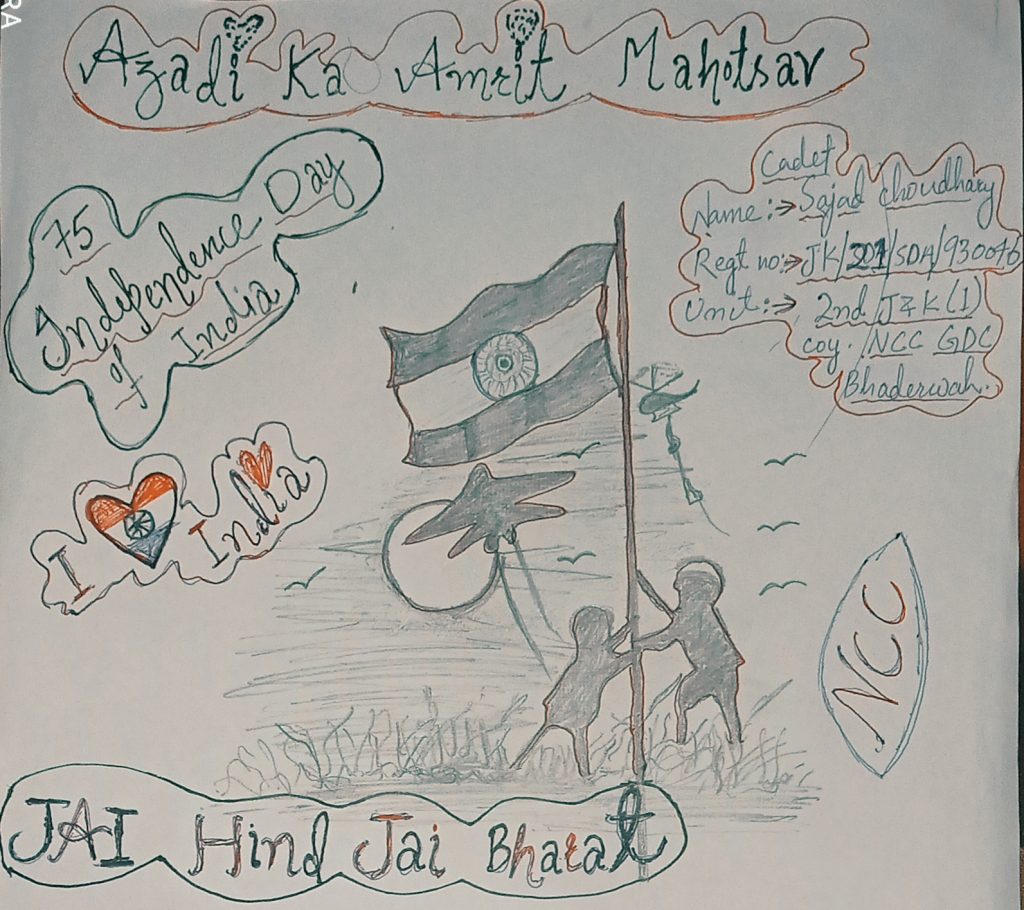 Azadi Ka Amrit Mahotsav
75
Independence Day
of India
Cadet
Name:→ Sajad Choudhary
Regt no:→ JK/201/SDA/930046
Unit:→ 2nd J&K(I)
coy. NCC GDC
Bhaderwah.
I India
NCC
JAI Hind Jai Bharat
RA